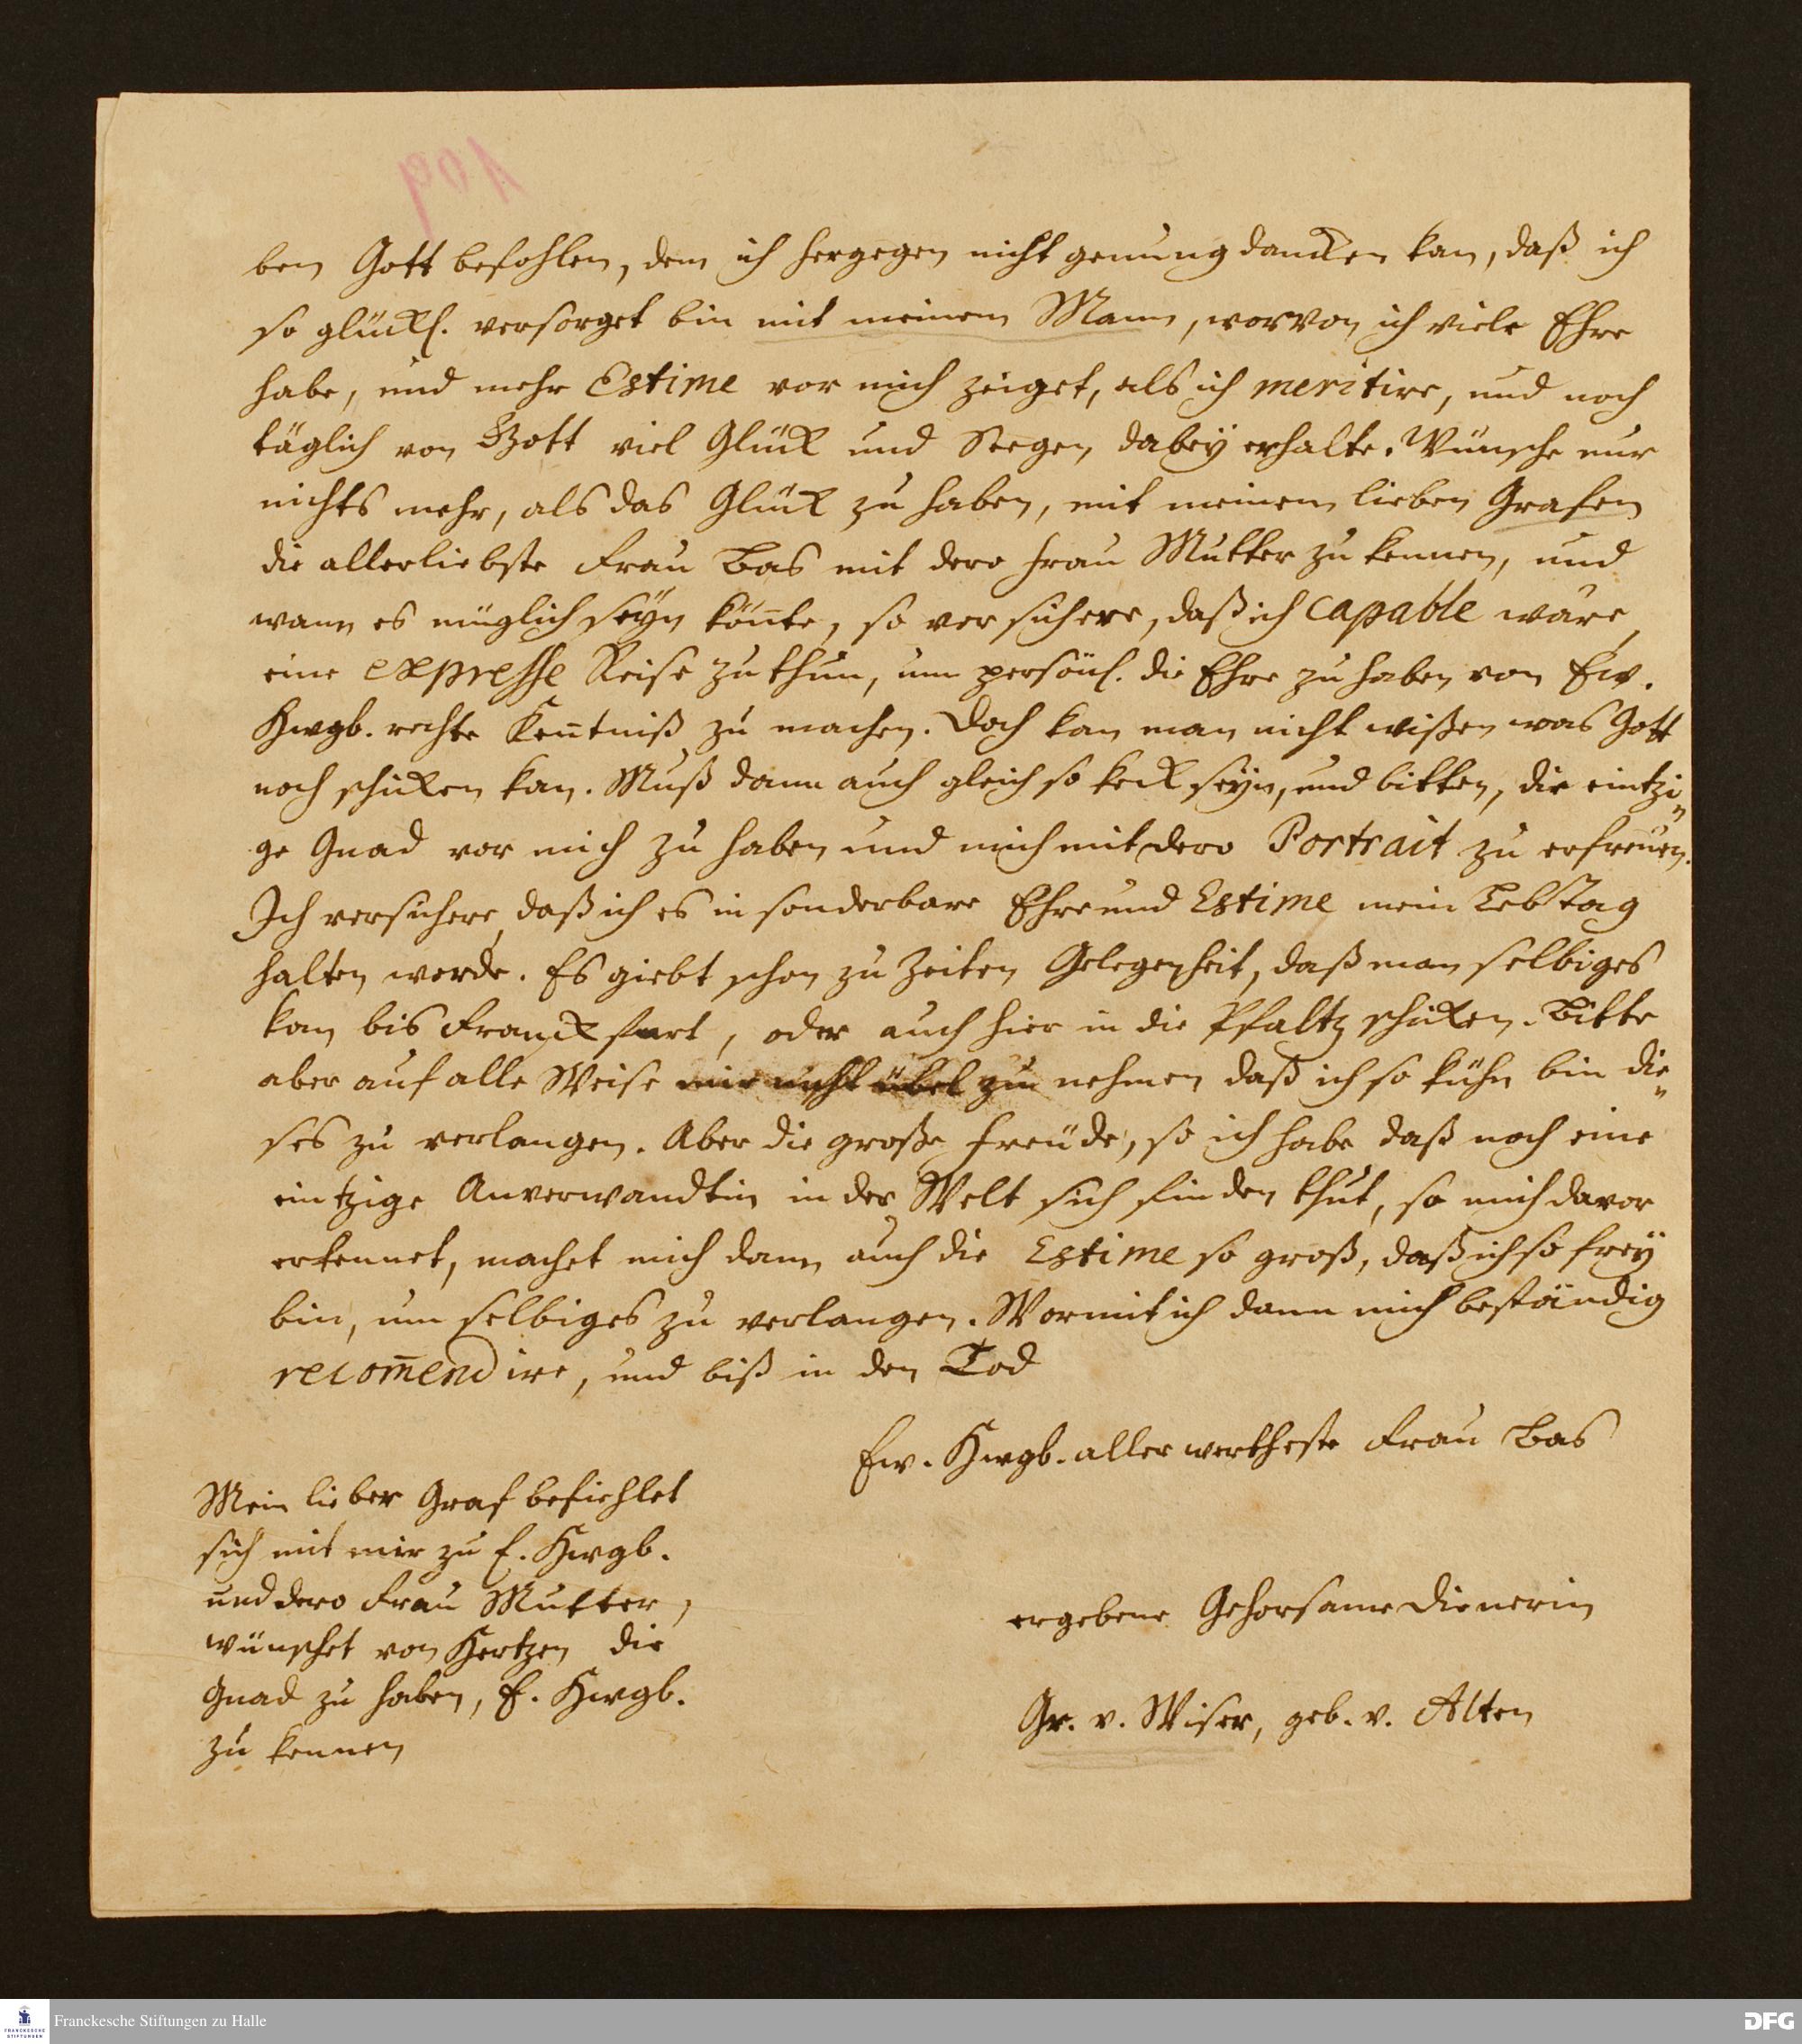 109
ben Gott befohlen, dem ich hergegen nicht genung dancken kan, daß ich
so glückl. versorget bin mit meinem Mann, worvon ich viele Ehre
habe, und mehr Estime vor mich zeiget, als ich meritire, und noch
täglich von Gott viel Glück und Seegen dabey erhalte. Wünsche nur
nichts mehr, als das Glück zu haben, mit meinem lieben Grafen
die allerliebste Frau Bas mit dero Frau Mutter zu kennen, und
wann es müglich seyn könte, so versichere, daß ich capable wäre,
eine expresse Reise zu thun, um persönl. die Ehre zu haben von Ew.
Hwgb. rechte Kentniß zu machen. Doch kan man nicht wißen was Gott
noch schicken kan. Muß dann auch gleich so keck seyn, und bitten, die eintzi=
ge Gnad vor mich zu haben und mich mit dero Portrait zu erfreuen.
Ich versichere, daß ich es in sonderbare Ehre und Estime mein Lebstag
halten werde. Es giebt schon zu Zeiten Gelegenheit, daß man selbiges
kan bis Franckfurt, oder auch hier in die Pfaltz schicken. Bitte
aber auf alle Weise mir nicht übel zu nehmen daß ich so kühn bin die=
ses zu verlangen. Aber die große Freude, so ich habe daß noch eine
eintzige Anverwandtin in der Welt sich finden thut, so mich davor
erkennet, machet mich dann auch die Estime so groß, daß ich so frey
bin, um selbiges zu verlangen. Wormit ich dann mich beständig
recom̄endire, und biß in den Tod
Ew. Hwgb. allerwertheste Frau Bas
Mein lieber Graf befiehlet
sich mit mir zu E. Hwgb.
und dero Frau Mutter,
wünschet von Hertzen die
Gnad zu haben, E. Hwgb.
zu kennen
ergebene Gehorsame Dienerin
Gr. v. Wiser, geb. v. Alten
FRANCKESCHE STIFTUNGEN
Franckesche Stiftungen zu Halle
DFG